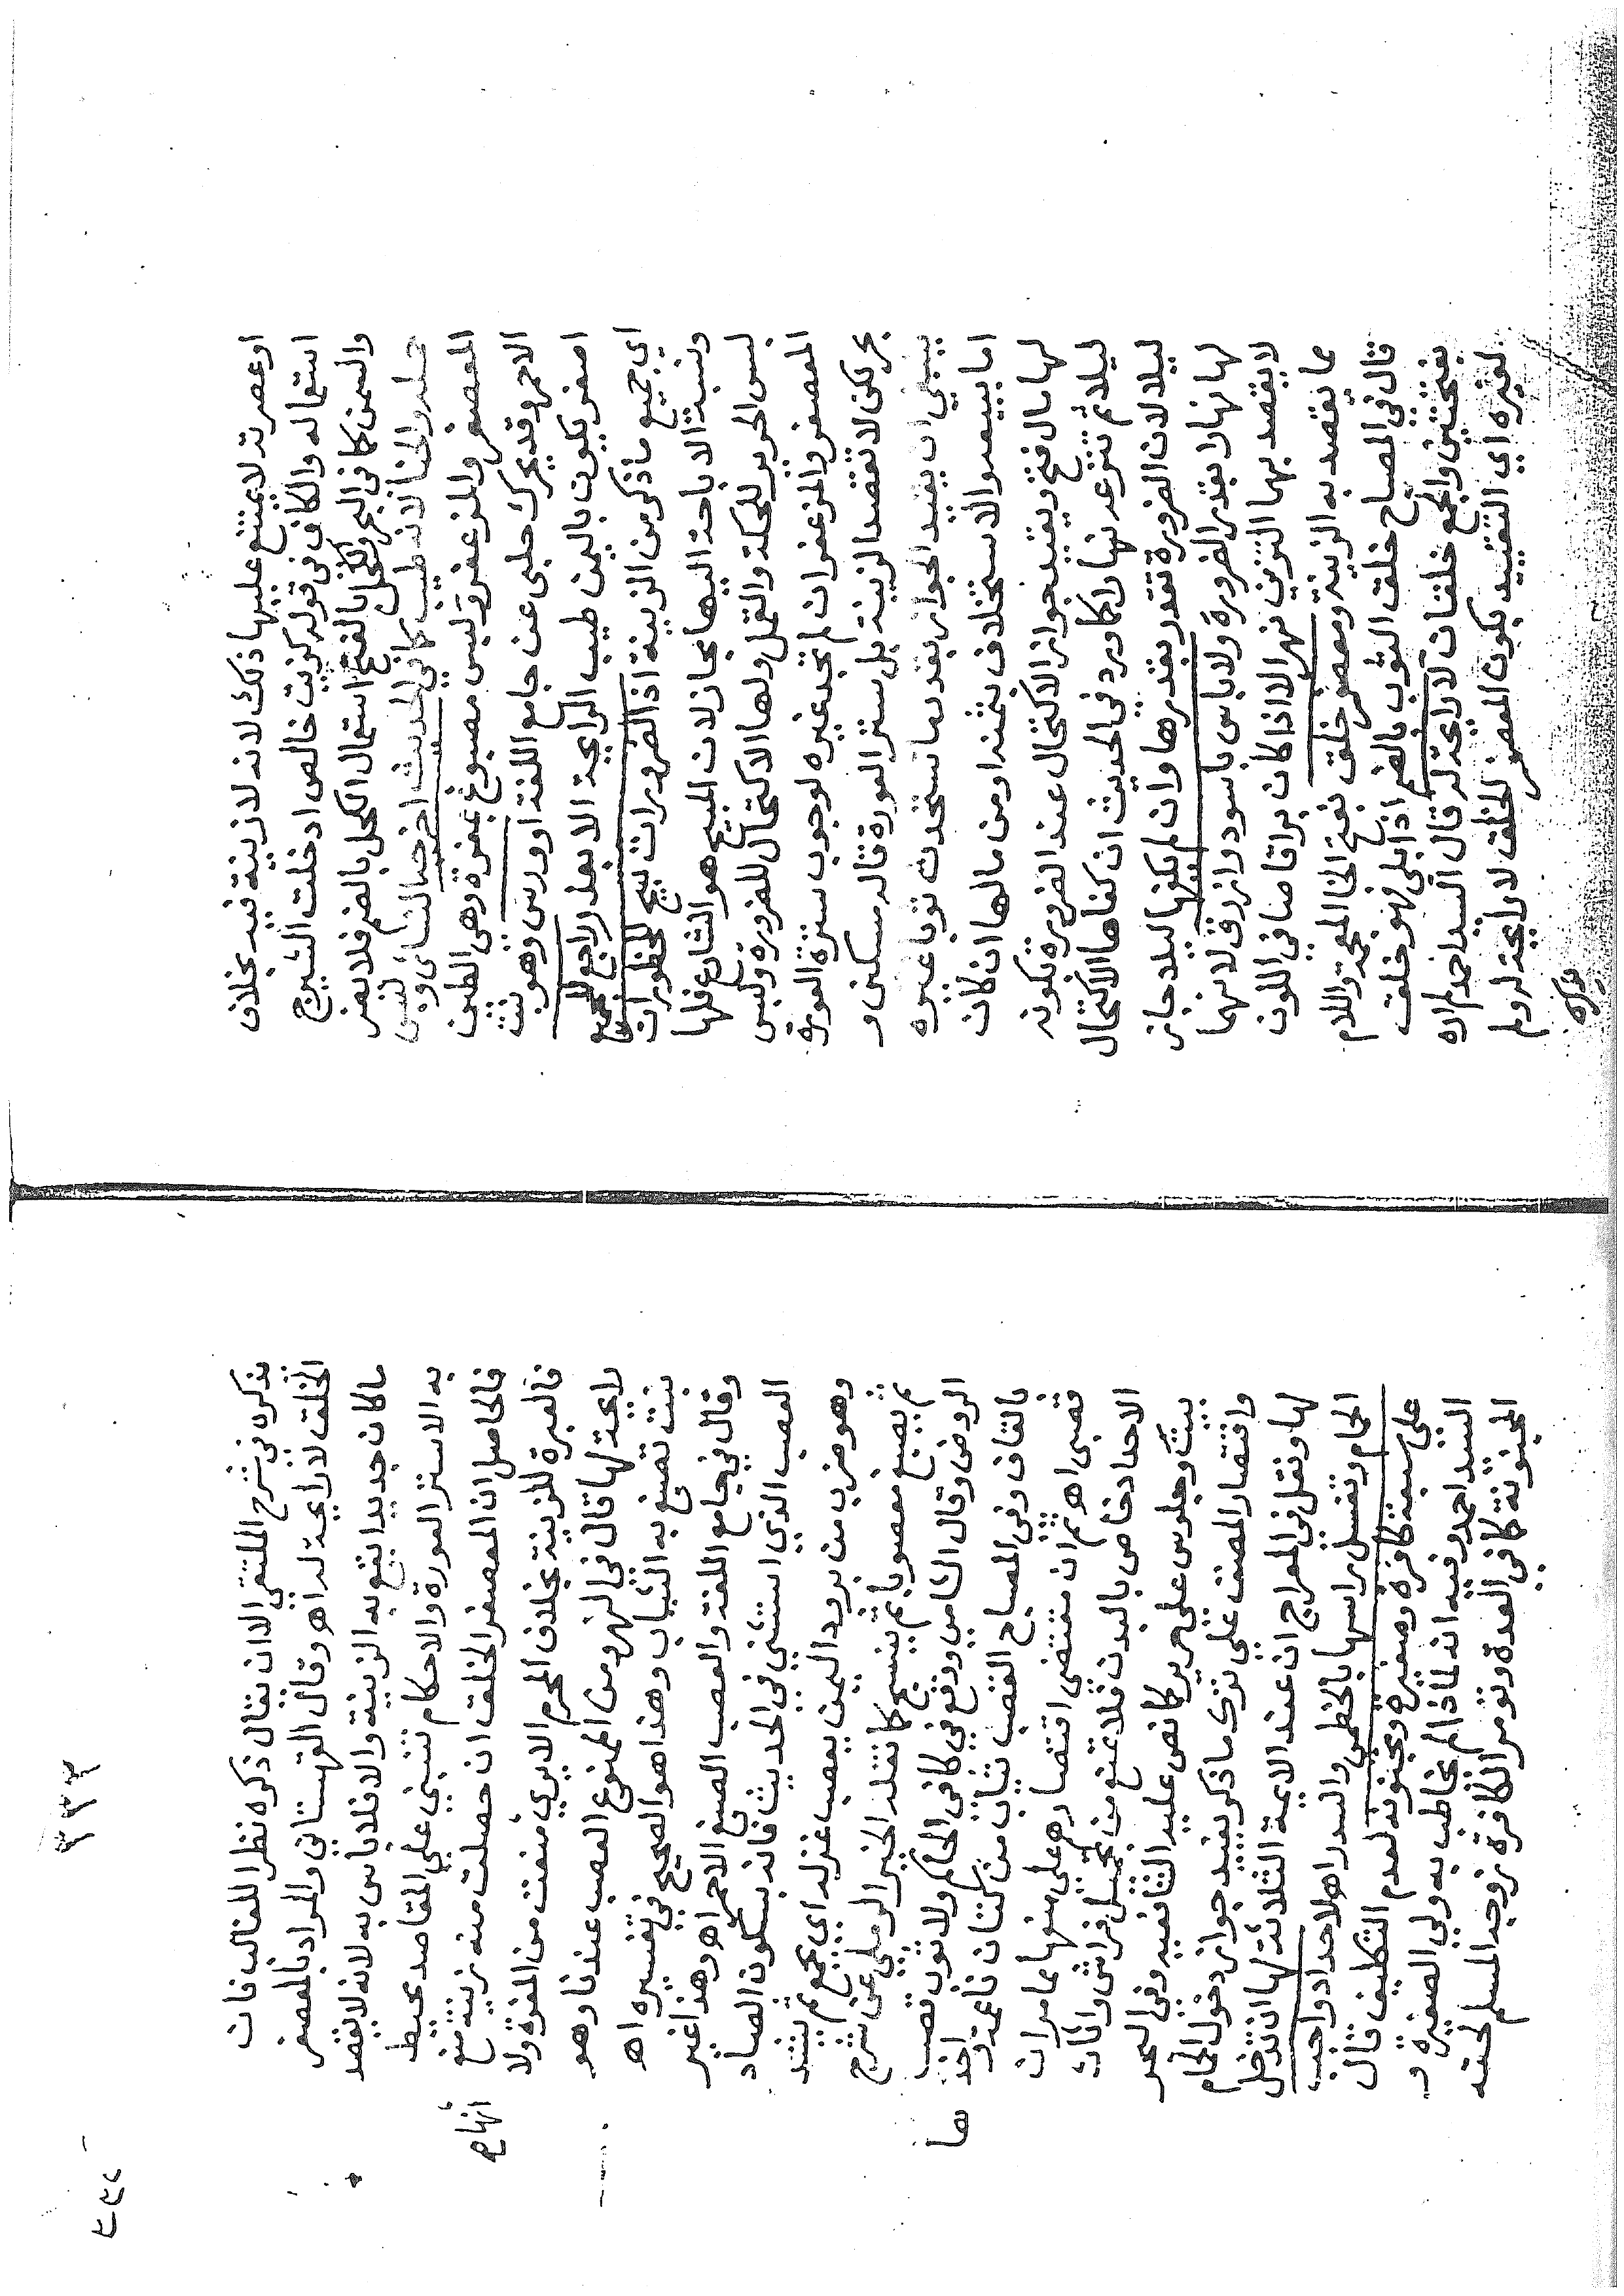 اوعصرته لا يمتنع عليها ذلك لانه لا زينة فيه بخلاف
استعماله والكاف في قوله كزيت خالص ادخلت الشيرج
والسمن كما في البحر والكحل بالفتح استعمال الكحل بالضم فلا يضر
والحنا لانه طيب كما في الحديث اخرجه النسائ ولبس
المعصفر والمزعفر ولبس مصبوغ بمغرة وهي الطين
الاحمر وقد يحرك حلبى عن جامع اللغة او ورس وهو نبت
اصفر يكون باليمن طيب الرايحة الا بعذر راجع للجميع
اي جميع ما ذكر من الزينة اذ الضرورات تبيح المحظورات
ونسبة الاباحة اليها مجاز لان المبيح هو الشارع فلها
لبس الحرير للحكة والقمل ولها الاكتحال للضرورة ولبس
المعصفر والمزعفر ان لم تجد غيره لوجوب ستر العورة
بحر لكن لا تقصد الزينة بل ستر العورة قاله مسكين و
ينبغي ان يقيد الجواز بقدر ما تستحدث ثوبا غيره
اما ببيعه والاستخلاف بثمنه او من مالها ان كان
لها مال فتح ويقيد جواز الاكتحال عند الضرورة بكونه
ليلا ثم تنزعه نهارا كما ورد في الحديث ان كفاها الاكتحال
ليلا لان الضرورة تتقدر بقدرها وان لم يكفها ليلا جاز
لها نهارا بقدر الضرورة ولا باس باسود وازرق لانهما
لا يقصد بهما التزين نهر الا اذا كان براقا صافي اللون
مما يقصد به الزينة ومعصفر خلق بفتح الخا المعجمة واللام
قال في المصباح خلق الثوب بالضم اذا بلي فهو خلق
بفتحتين والجمع خلقان لا رايحة له قال السيد احمد لم اره
لغيره اي التقييد بكون المعصفر الخلق لا رايحة له ولم
يذكره
يذكره في شرح الملتقي الا ان يقال ذكره نظرا للغالب فان
الخلق لا رايحة له اهـ وقال القهستاني والمراد بالمعصفر
ما كان جديدا يقع به الزينة والا فلا باس به لانه لا يقصد
به الا ستر العورة والاحكام تبتني علي المقاصد محيط
فالحاصل ان المعصفر الخلق ان حصلت منه زينة منع
فالعبرة للزينة بخلاف المحرم الا يري انها منعت من المغرة ولا
رايحة لها قال في النهر ومن الممنوع العصب عندنا وهو
نبت تصبغ به الثياب وهذا هو الصحيح في تفسيره اهـ
وقال في جامع اللغة والعصب الصبغ الاحمر اهـ وهذا غير
العصب الذي استثني في الحديث فانه بسكون الصاد
وهو ضرب من برود اليمن يعصب غزله اي يجمع ثم يشد
ثم يصبغ معصوبا ثم ينسج كما نقله الخير الرملي عن شرح
الروض وقال الشامي ووقع في كافي الحاكم ولا ثوب قصب
بالقاف وفي المصباح القصب ثياب من كتان ناعمة واحدها
قصبى اهـ ثم ان مقتضى اقتصارهم علي منعها مما مر ان
الاحداد خاص بالبدن فلا تمنع من تجميل فراش واثاث
بيت وجلوس علي حرير كما نص عليه الشافعية وفي البحر
واقتصار المصنف علي ترك ما ذكر يفيد جواز دخول الحمام
لها ونقل في المعراج ان عند الايمة الثلاثة لها ان تدخل
الحمام وتغسل راسها بالخطمى والسدر اهـ لا حداد واجب
على سبعة كافرة وصغيرة ومجنونة لعدم التكليف قال
السيد احمد وفيه انه لماذا لم يخاطب به ولي الصغيرة و
المجنونة كما في العدة وتؤمر الكافرة زوجة المسلم لحقه